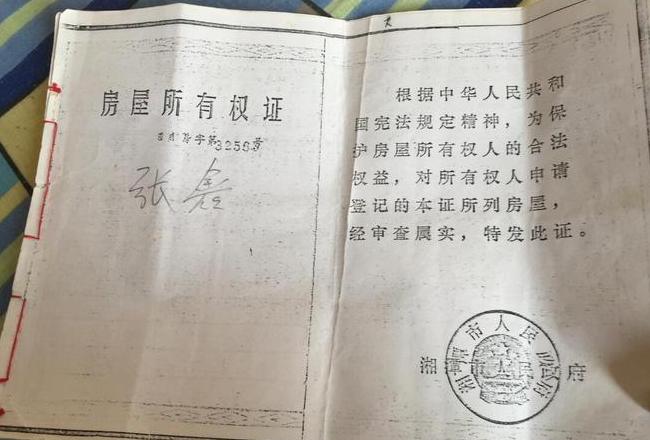 房屋所有权证
字第3256号
张鑫
根据中华人民共和
国宪法规定精神，为保
护房屋所有权人的合法
权益，对所有权人申请
登记的本证所列房屋，
经审查属实，特发此证。
湘潭市人民政府
湘潭市人民政府